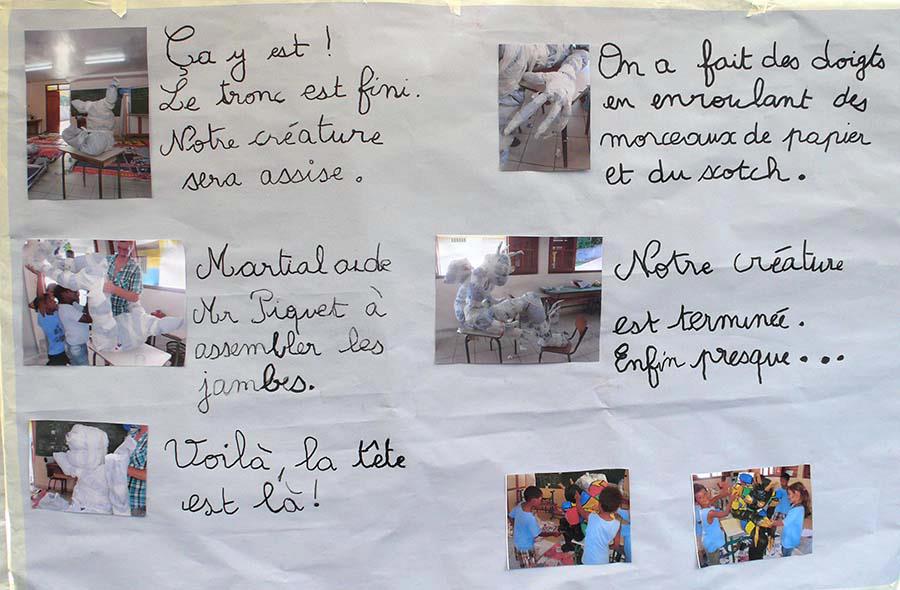 Ça y est !
Le tronc est fini.
Notre créature
sera assise.
Martial aide
Mr Piquet à
assembler les
jambes.
Voilà, la tête
est là !
On a fait des doigts
en enroulant des
morceaux de papier
et du scotch.
Notre créature
est terminée.
Enfin presque...